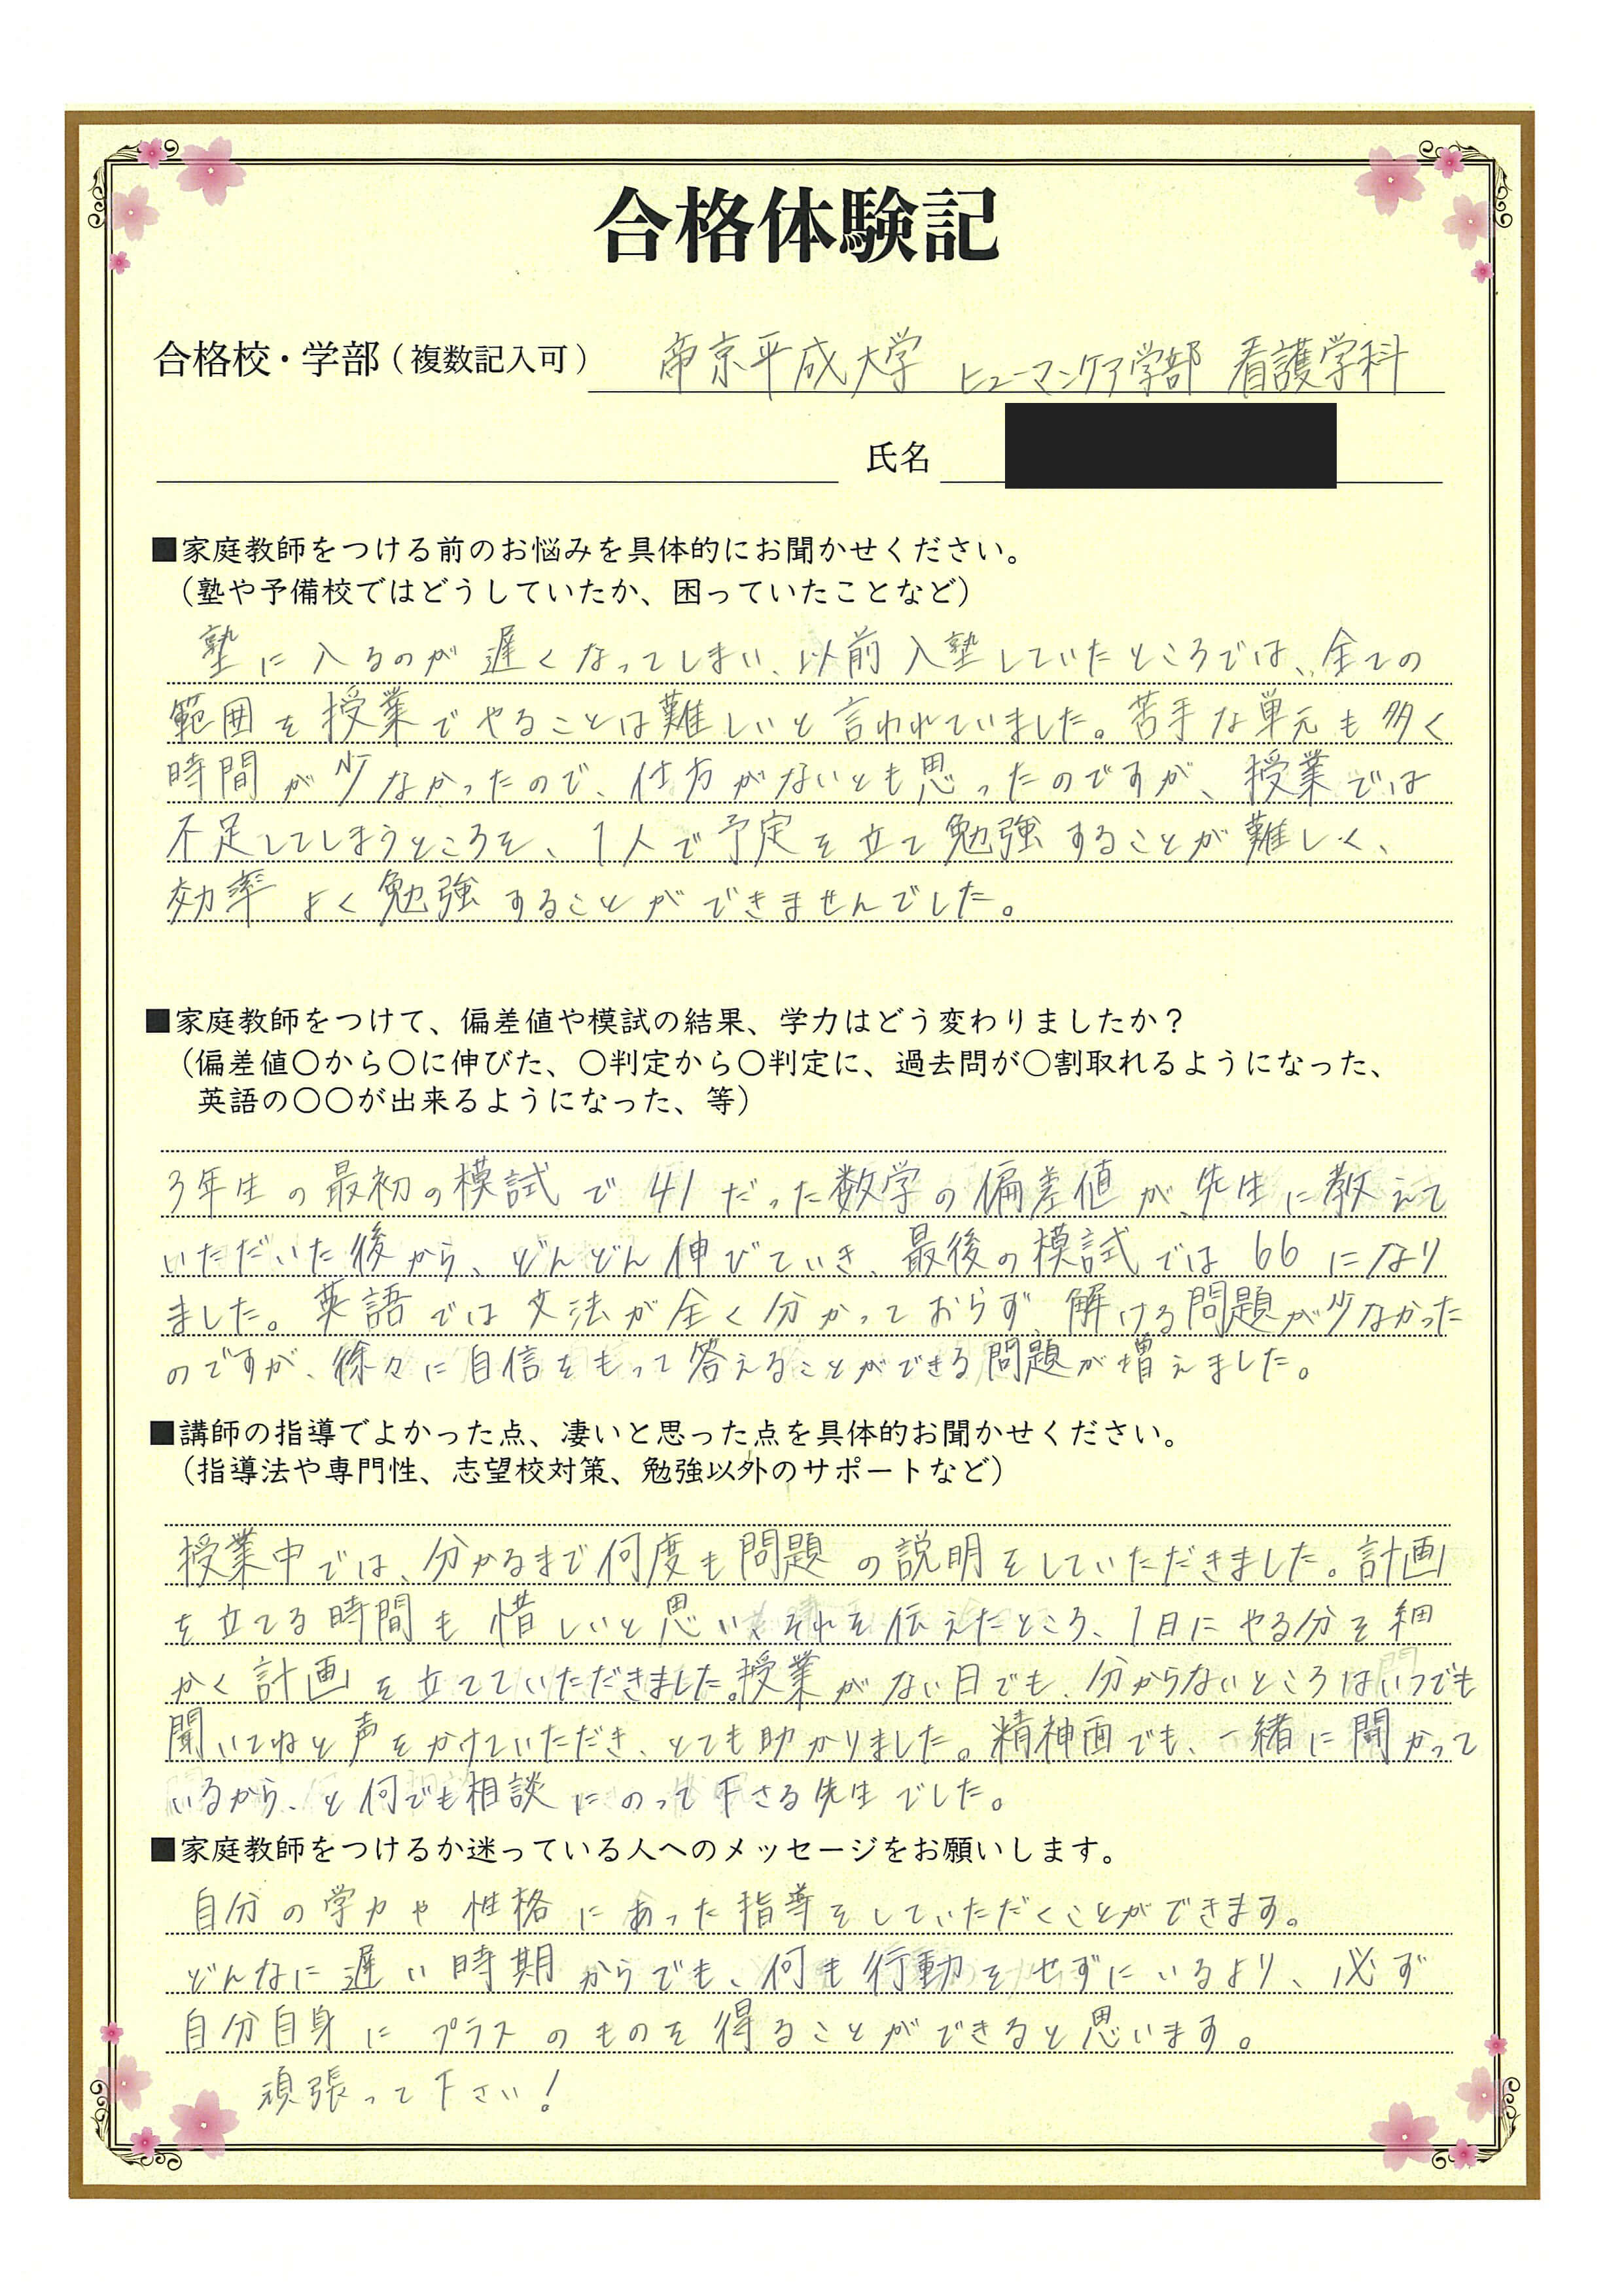 合格体験記
合格校・学部（複数記入可） 帝京平成大学 ヒューマンケア学部 看護学科
氏名
■家庭教師をつける前のお悩みを具体的にお聞かせください。
（塾や予備校ではどうしていたか、困っていたことなど）
塾に入るのが遅くなってしまい、以前入塾していたところでは、全ての
範囲を授業でやることは難しいと言われていました。苦手な単元も多く
時間が少なかったので、仕方がないとも思ったのですが、授業では
不足してしまうところを、1人で予定を立て勉強することが難しく、
効率よく勉強することができませんでした。
■家庭教師をつけて、偏差値や模試の結果、学力はどう変わりましたか？
（偏差値〇から〇に伸びた、〇判定から〇判定に、過去問が〇割取れるようになった、
英語の〇〇が出来るようになった、等）
3年生の最初の模試で41だった数学の偏差値が、先生に教えて
いただいた後から、どんどん伸びていき、最後の模試では66になり
ました。英語では文法が全く分かっておらず、解ける問題が少なかった
のですが、徐々に自信をもって答えることができる問題が増えました。
■講師の指導でよかった点、凄いと思った点を具体的お聞かせください。
（指導法や専門性、志望校対策、勉強以外のサポートなど）
授業中では、分かるまで何度も問題の説明をしていただきました。計画
を立てる時間も惜しいと思い、それを伝えたところ、1日にやる分を細
かく計画を立てていただきました。授業がない日でも、分からないところはいつでも
聞いてねと声をかけていただき、とても助かりました。精神面でも、一緒に闘かって
いるから、と何でも相談にのって下さる先生でした。
■家庭教師をつけるか迷っている人へのメッセージをお願いします。
自分の学力や性格にあった指導をしていただくことができます。
どんなに遅い時期からでも、何も行動をせずにいるより、必ず
自分自身にプラスのものを得ることができると思います。
頑張って下さい！